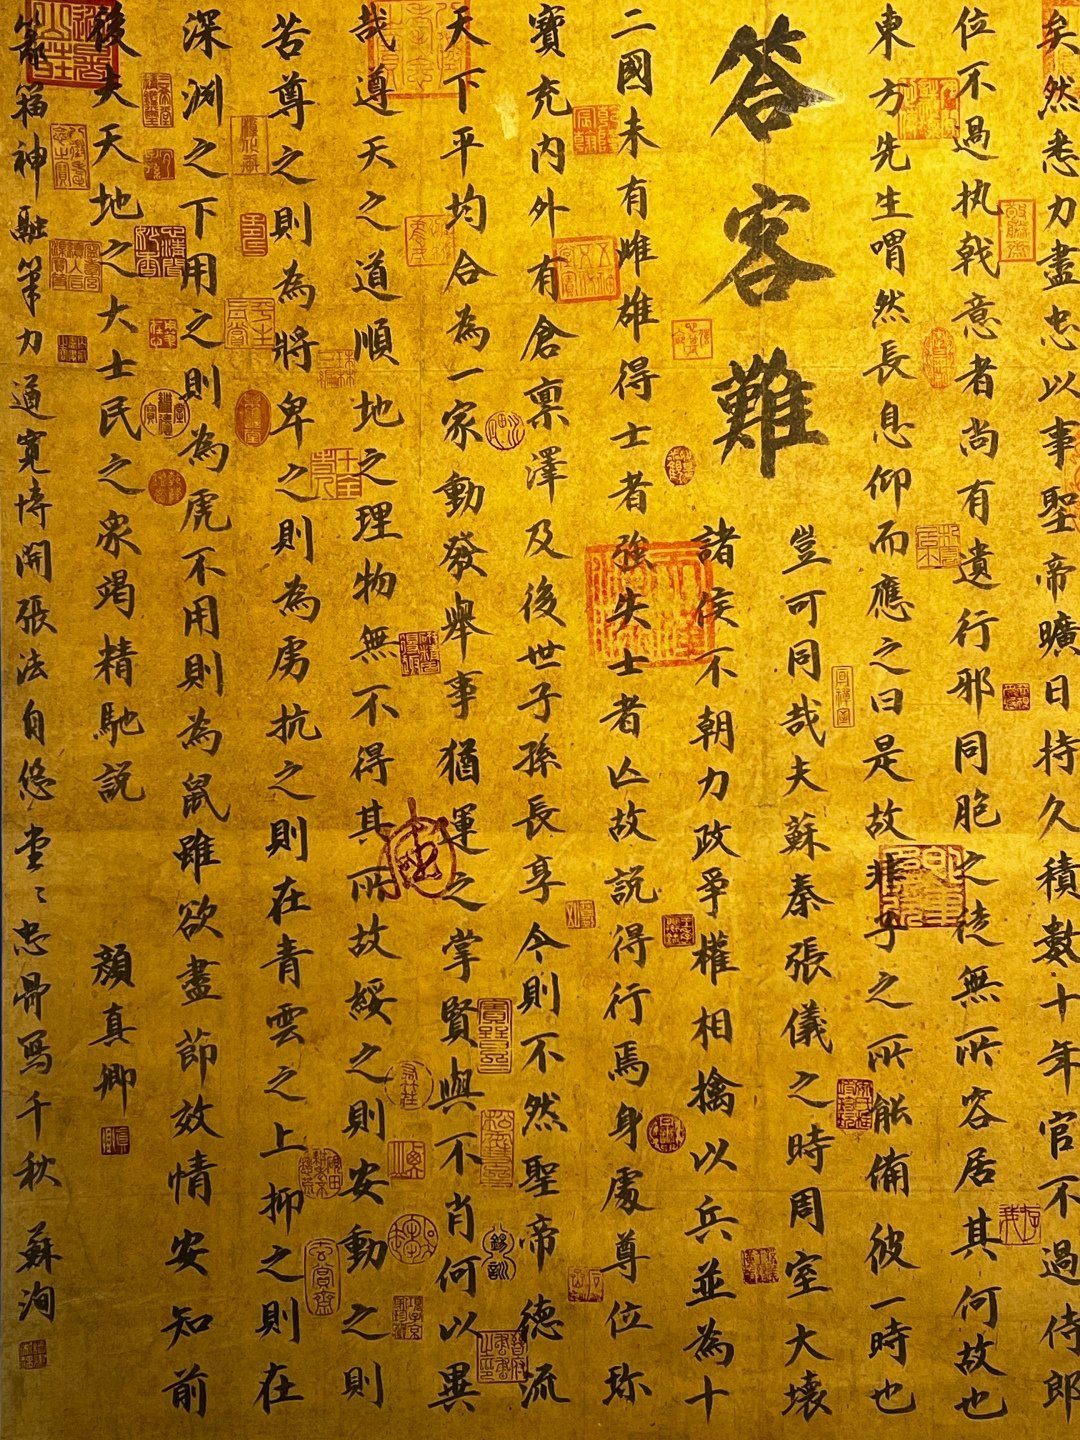 矣然悉力盡忠以事聖帝曠日持久積數十年官不過侍郎
位不過执戟意者尚有遺行邪同胞之徒無所容居其何故也
東方先生喟然長息仰而應之曰是故非子之所能備彼一時也
答客難
豈可同哉夫蘇秦張儀之時周室大壞
諸侯不朝力政爭權相擒以兵並為十
二國未有雌雄得士者強失士者亾故説得行焉身處尊位珍
寶充内外有倉稟澤及後世子孫長享今則不然聖帝德流
天下平均合為一家動發舉事猶運之掌賢與不肖何以異
哉遵天之道順地之理物無不得其所故綏之則安動之則
苦尊之則為將卑之則為虜抗之則在青雲之上抑之則在
深渊之下用之則為虎不用則為鼠雖欲盡節效情安知前
後夫天地之大士民之衆竭精馳説 顏真卿
篆籀神融筆力遒寛博開張法自悠堂〻忠骨寫千秋 蘇洵